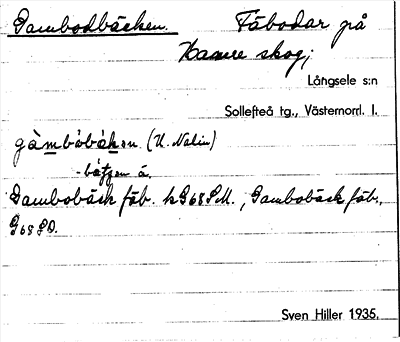 Gambodbäcken. Fäbodar på
Hamre skog;
Långsele s:n
Sollefteå tg., Västernorrl. l.
gàmbòbäkən (U. Nalin)
-bätjən ä.
Gambobäck fäb. kG68SM., Gambobäck fäb.,
G68SO.
Sven Hiller 1935.